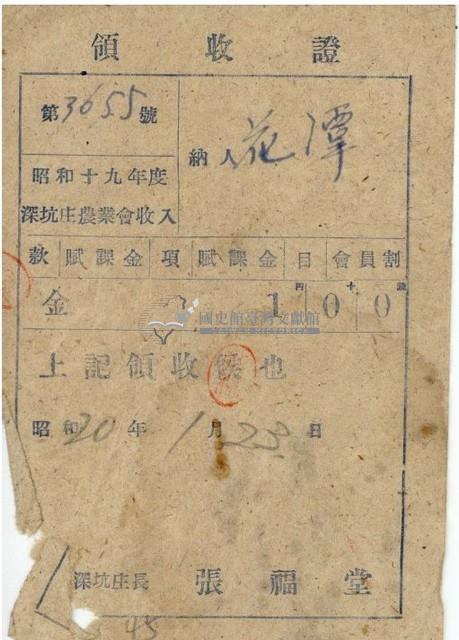 領收證
第3655號
納人 花潭
昭和十九年度
深坑庄農業會收入
款 賦課金 項 賦課金 目 會員割
金 1圓 0十 0錢
國史館臺灣文獻館
TAIWAN HISTORICA
上記領收候也
昭和20年1月23日
深坑庄長 張福堂
45